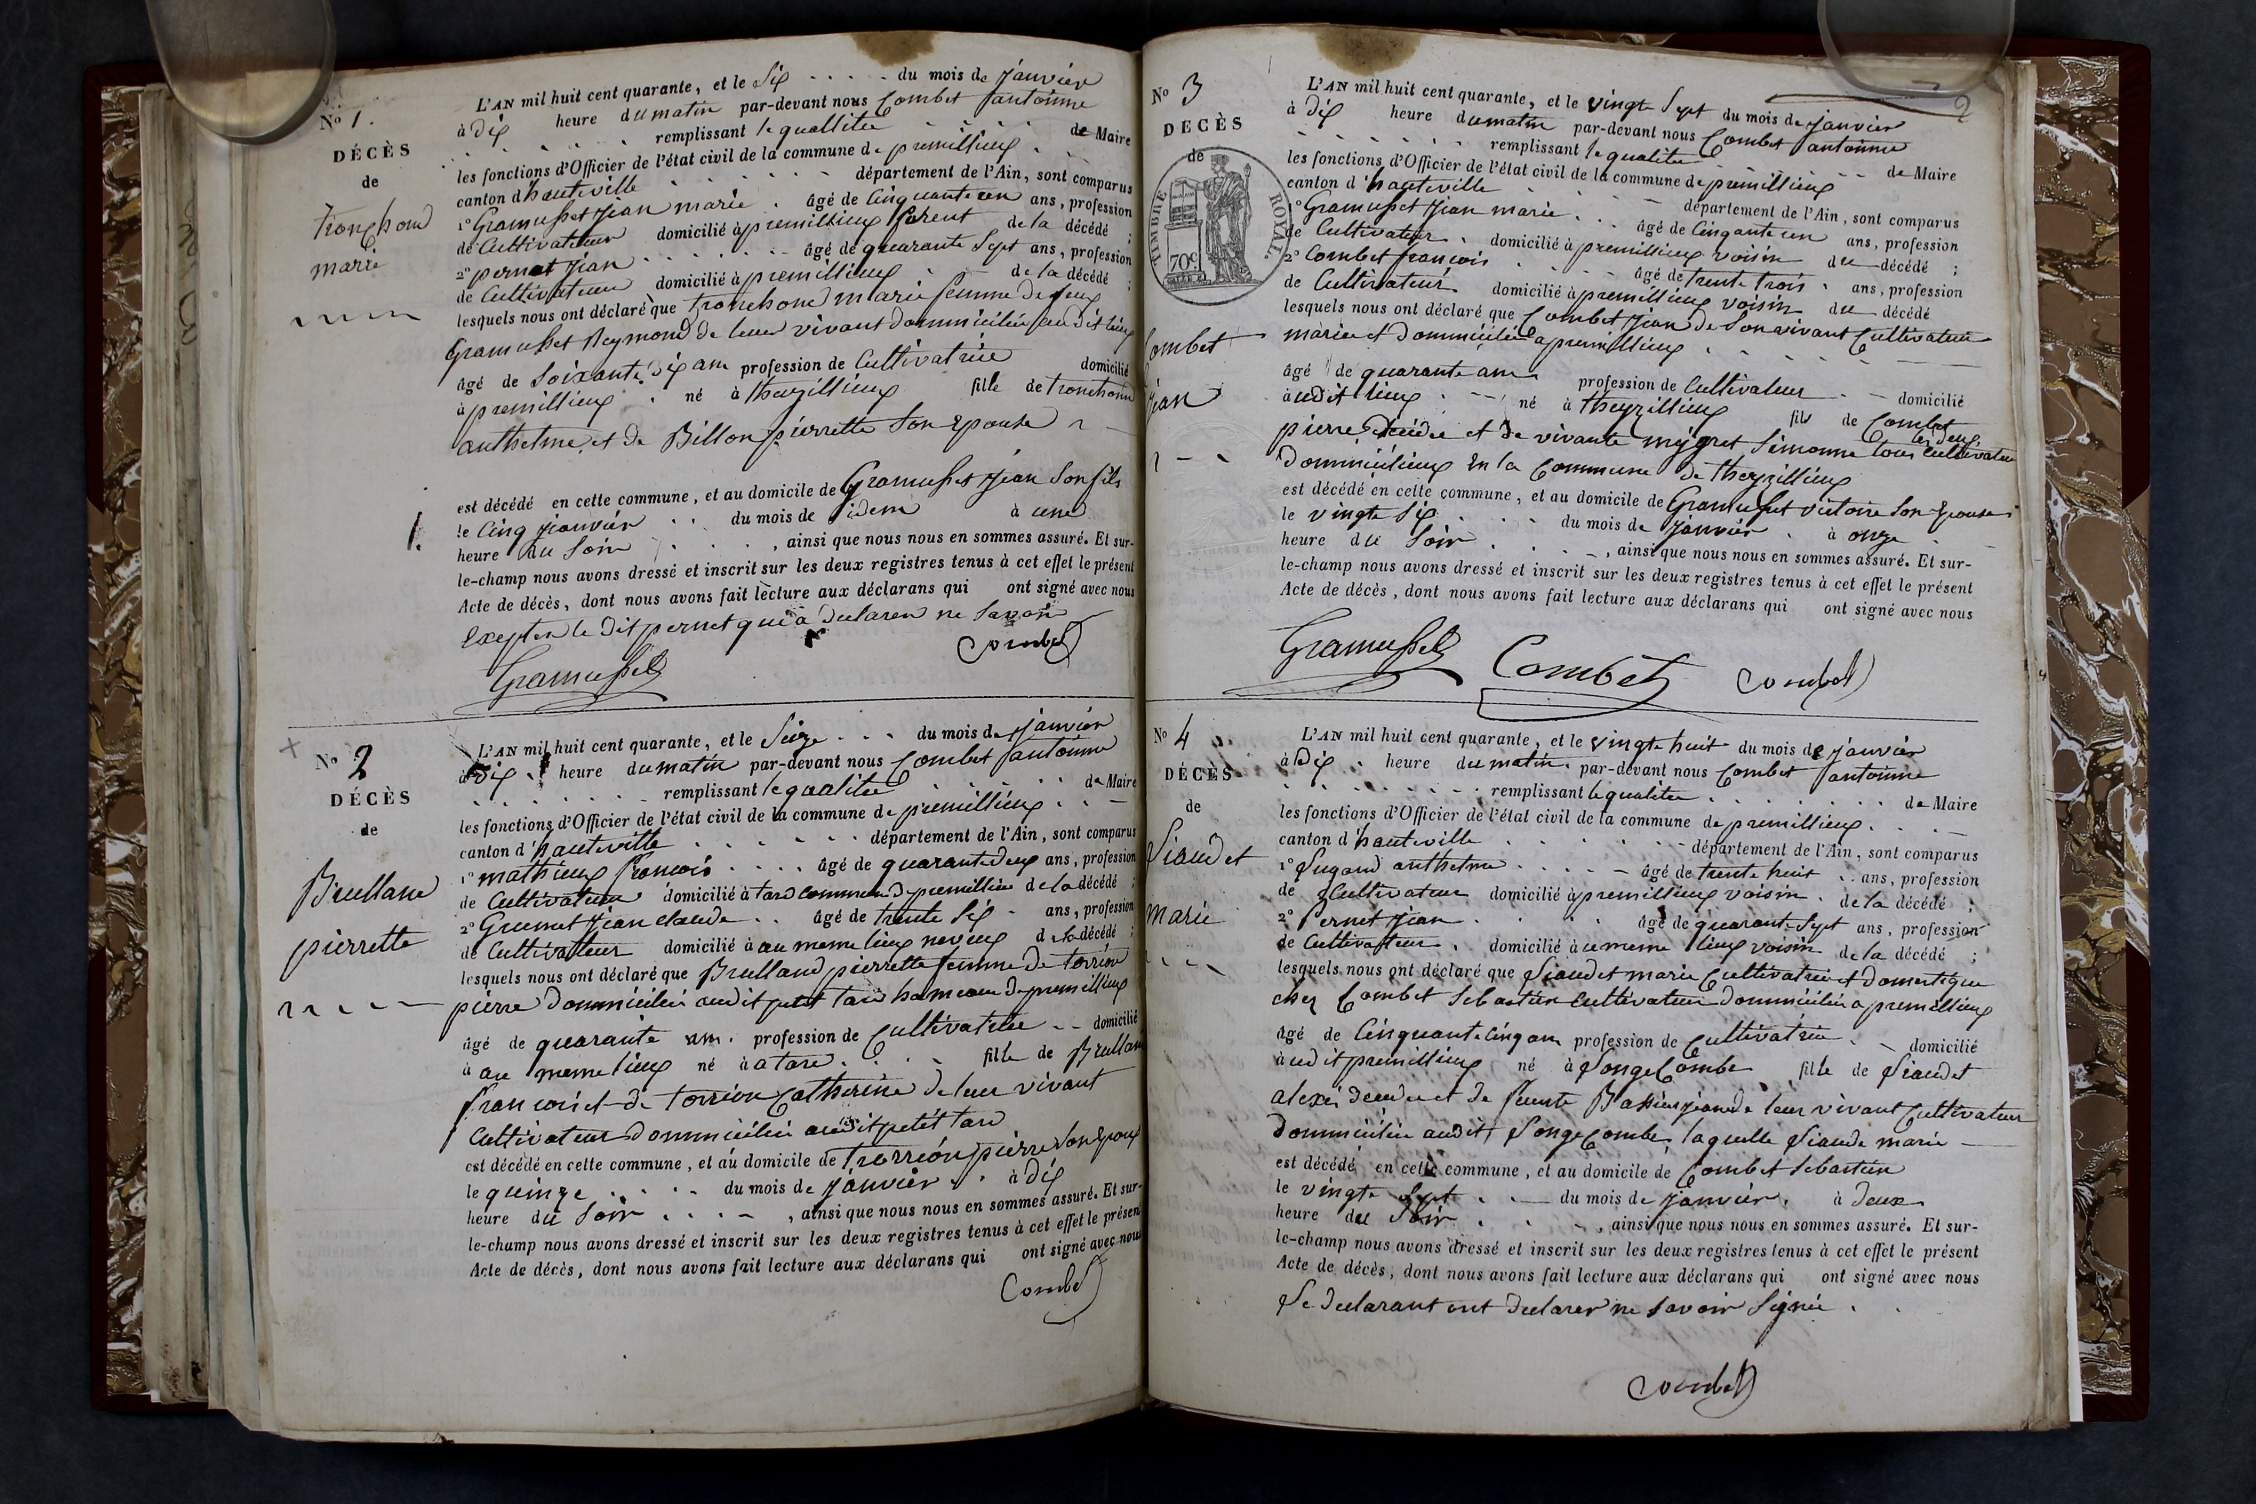 N° 1.
DÉCÈS
de
tronchond
marie
L'AN mil huit cent quarante, et le Six du mois de janvier
à Dix heure du matin par-devant nous Combet antoinne
remplissant le quallitée de Maire
les fonctions d'Officier de l'état civil de la commune de premillieux
canton d'hauteville département de l'Ain, sont comparus
1° Gramusset Jean marie âgé de Cinquante un ans, profession
de Cultivateur domicilié à premillieux parent de la décédé ;
2° pernet Jean âgé de quarante Sept ans, profession
de Cultivateur domicilié à premillieux de la décédé ;
lesquels nous ont déclaré que tronchond marie femme de feux
Gramusset Reymond de leur vivant dommiciliée audit lieux
âgé de Soixante Dix ans profession de Cultivatrice domicilié
à premillieux né à thezillieux fille de tronchond
anthelme et de Billon pierrette Son Epouse
est décédé en cette commune, et au domicile de Gramusset Jean Son fils
le Cinq janvier du mois de idem à une
heure du Soir , ainsi que nous nous en sommes assuré. Et sur-
le-champ nous avons dressé et inscrit sur les deux registres tenus à cet effet le présent
Acte de décès, dont nous avons fait lecture aux déclarans qui ont signé avec nous
Excepter le dit pernet qui a declarer ne Savoir
Combet
Gramusset
N° 2
DÉCÈS
de
Brulland
pierrette
L'AN mil huit cent quarante, et le Seize du mois de janvier
à Dix heure du matin par-devant nous Combet antoinne
remplissant le qualitée de Maire
les fonctions d'Officier de l'état civil de la commune de premillieux
canton d'hauteville département de l'Ain, sont comparus
1° mathieux françois âgé de quarante deux ans, profession
de Cultivateur domicilié à tard commune de premillieu de la décédé ;
2° Grumet Jean claude âgé de trente Six ans, profession
de Cultivatteur domicilié à au meme lieux neveux de la décédé ;
lesquels nous ont déclaré que Brulland pierrette femme de torrion
pierre dommiciliée audit petit tard hameau de premillieux
âgé de quarante ans profession de Cultivatrice domicilié
à au meme lieux né à a tare fille de Brulland
francois et de torrion Catherine de leur vivant
Cultivateur dommiciliée audit petit tard
est décédé en cette commune, et au domicile de torrion pierre Son Epoux
le quinze du mois de janvier à dix
heure du Soir , ainsi que nous nous en sommes assuré. Et sur-
le-champ nous avons dressé et inscrit sur les deux registres tenus à cet effet le présent
Acte de décès, dont nous avons fait lecture aux déclarans qui ont signé avec nous
Combet
2
N° 3
DECÈS
de
TIMBRE ROYAL
70c
Combet
Jean
L'AN mil huit cent quarante, et le vingt Sept du mois de janvier
à Dix heure du matin par-devant nous Combet antoinne
remplissant le qualitée de Maire
les fonctions d'Officier de l'état civil de la commune de premillieux
canton d'hauteville département de l'Ain, sont comparus
1° Gramusset Jean marie âgé de Cinqante un ans, profession
de Cultivateur domicilié à premillieux voisin du décédé ;
2° Combet francois âgé de trente trois ans, profession
de Cultivateur domicilié à premillieux voisin du décédé
lesquels nous ont déclaré que Combet Jean de Son vivant Cultivateur
mariée et dommiciliée a premillieux
âgé de quarante ans profession de Cultivateur domicilié
à udit lieux né à theyzillieux fils de Combet
pierre décédée et de vivante mygret Simonne tous les deux Cultivateur
Dommicilieux en la Commune de theyzillieux
est décédé en cette commune, et au domicile de Gramusset victoire Son Epouse
le vingt Six du mois de janvier à onze
heure du Soir , ainsi que nous nous en sommes assuré. Et sur-
le-champ nous avons dressé et inscrit sur les deux registres tenus à cet effet le présent
Acte de décès, dont nous avons fait lecture aux déclarans qui ont signé avec nous
Gramusset Combet Combet
N° 4
DÉCÈS
de
Siaudet
Marie
L'AN mil huit cent quarante, et le vingt huit du mois de janvier
à Dix heure du matin par-devant nous Combet antoinne
remplissant le qualitée de Maire
les fonctions d'Officier de l'état civil de la commune de premillieux
canton d'hauteville département de l'Ain, sont comparus
1° Lugand anthelme âgé de trente huit ans, profession
de Cultivateur domicilié à premillieux voisin de la décédé ;
2° Pernet Jean âgé de quarante Sept ans, profession
de Cultivateur domicilié à umeme lieux voisin de la décédé ;
lesquels nous ont déclaré que Siaudet marie Cultivatrice et domestique
chez Combet Sebastien Cultivateur dommiciliée a premillieux
âgé de Cinquante Cinq ans profession de Cultivatrice domicilié
à udit premillieux né à Longe Combe fille de Siaudet
alexis decedee et de de leur vivant Cultivateur
Dommiciliée audit Longe Combe laquelle Siaude marie
est décédé en cette commune, et au domicile de Combet Sebastien
le vingt Sept du mois de janvier à deux
heure du Soir , ainsi que nous nous en sommes assuré. Et sur-
le-champ nous avons dressé et inscrit sur les deux registres tenus à cet effet le présent
Acte de décès, dont nous avons fait lecture aux déclarans qui ont signé avec nous
Le declarant ont declarer ne Savoir Signée
Combet